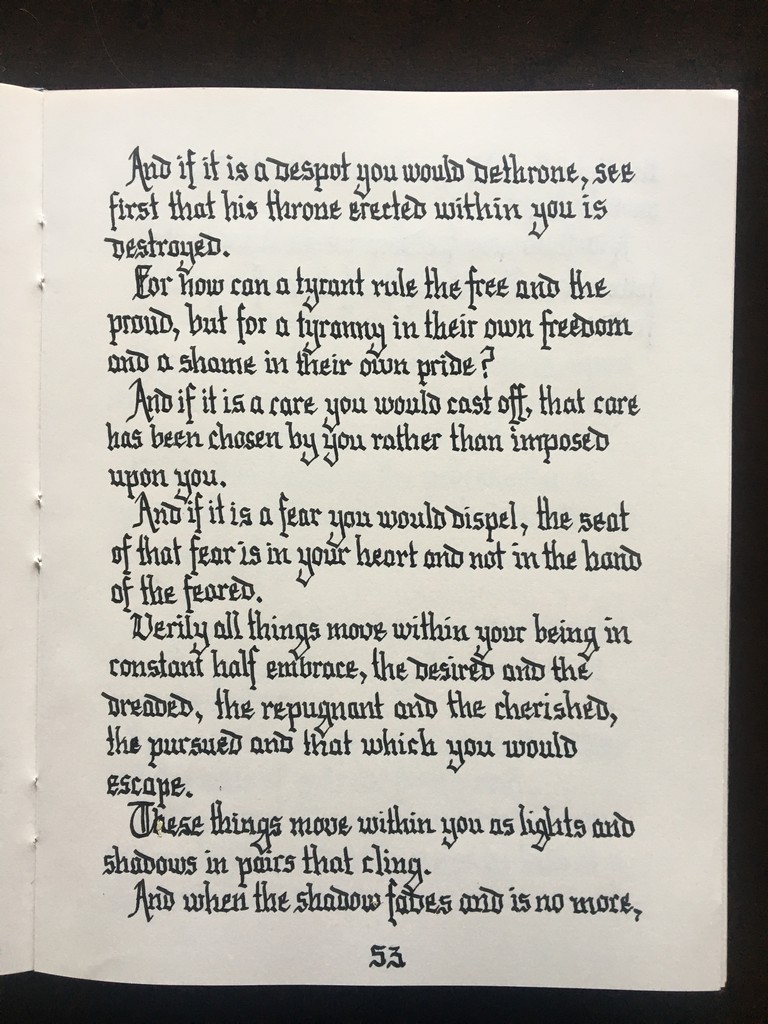 And if it is a despot you would dethrone, see
first that his throne erected within you is
destroyed.
For how can a tyrant rule the free and the
proud, but for a tyranny in their own freedom
and a shame in their own pride?
And if it is a care you would cast off, that care
has been chosen by you rather than imposed
upon you.
And if it is a fear you would dispel, the seat
of that fear is in your heart and not in the hand
of the feared.
Verily all things move within your being in
constant half embrace, the desired and the
dreaded, the repugnant and the cherished,
the pursued and that which you would
escape.
These things move within you as lights and
shadows in pairs that cling.
And when the shadow fades and is no more,
53